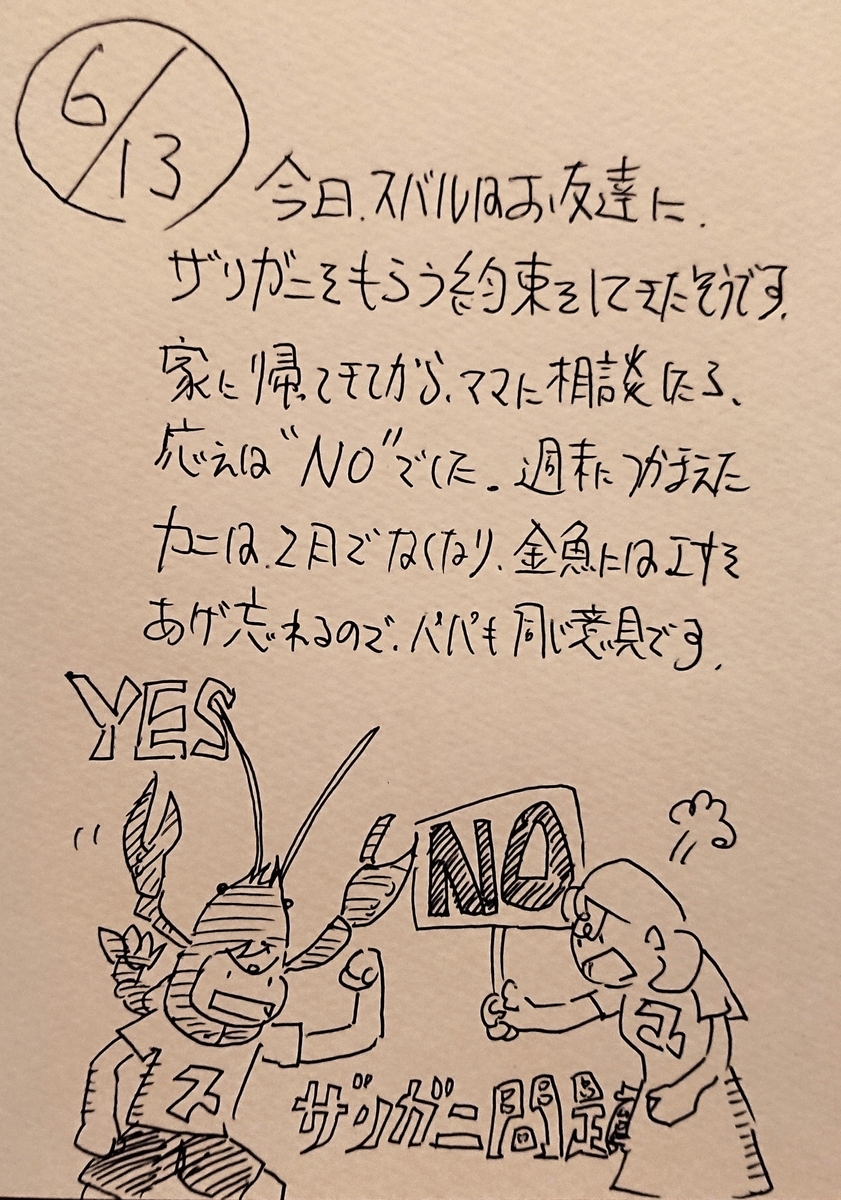 6/13
今日、スバルはお友達に、
ザリガニをもらう約束をしてきたそうです。
家に帰ってきてから、ママに相談したら、
応えは"NO"でした。週末につかまえた
カニは、2日でなくなり、金魚にはエサを
あげ忘れるので、パパも同じ意見です。
YES
NO
ス
ス
ザリガニ問題